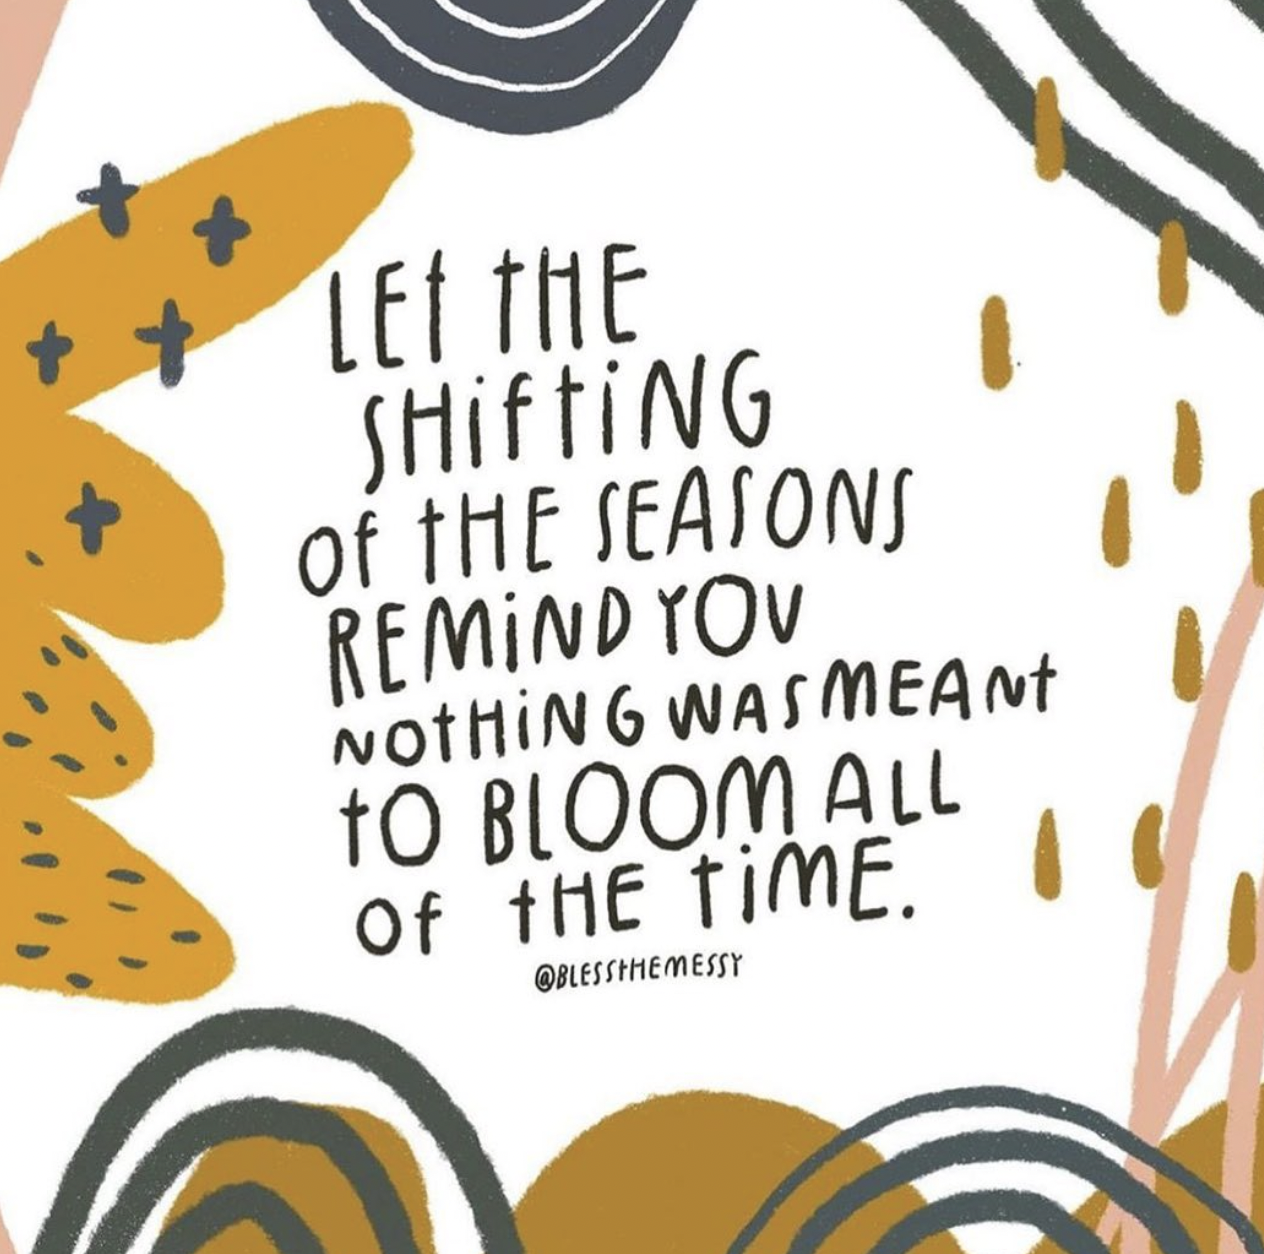 LEt tHE
SHiftiNG
Of tHE SEASONS
REMiND YOU
NOtHiNG WAS MEANt
tO BLOOM ALL
Of tHE tiME.
@BLESStHEMESSY